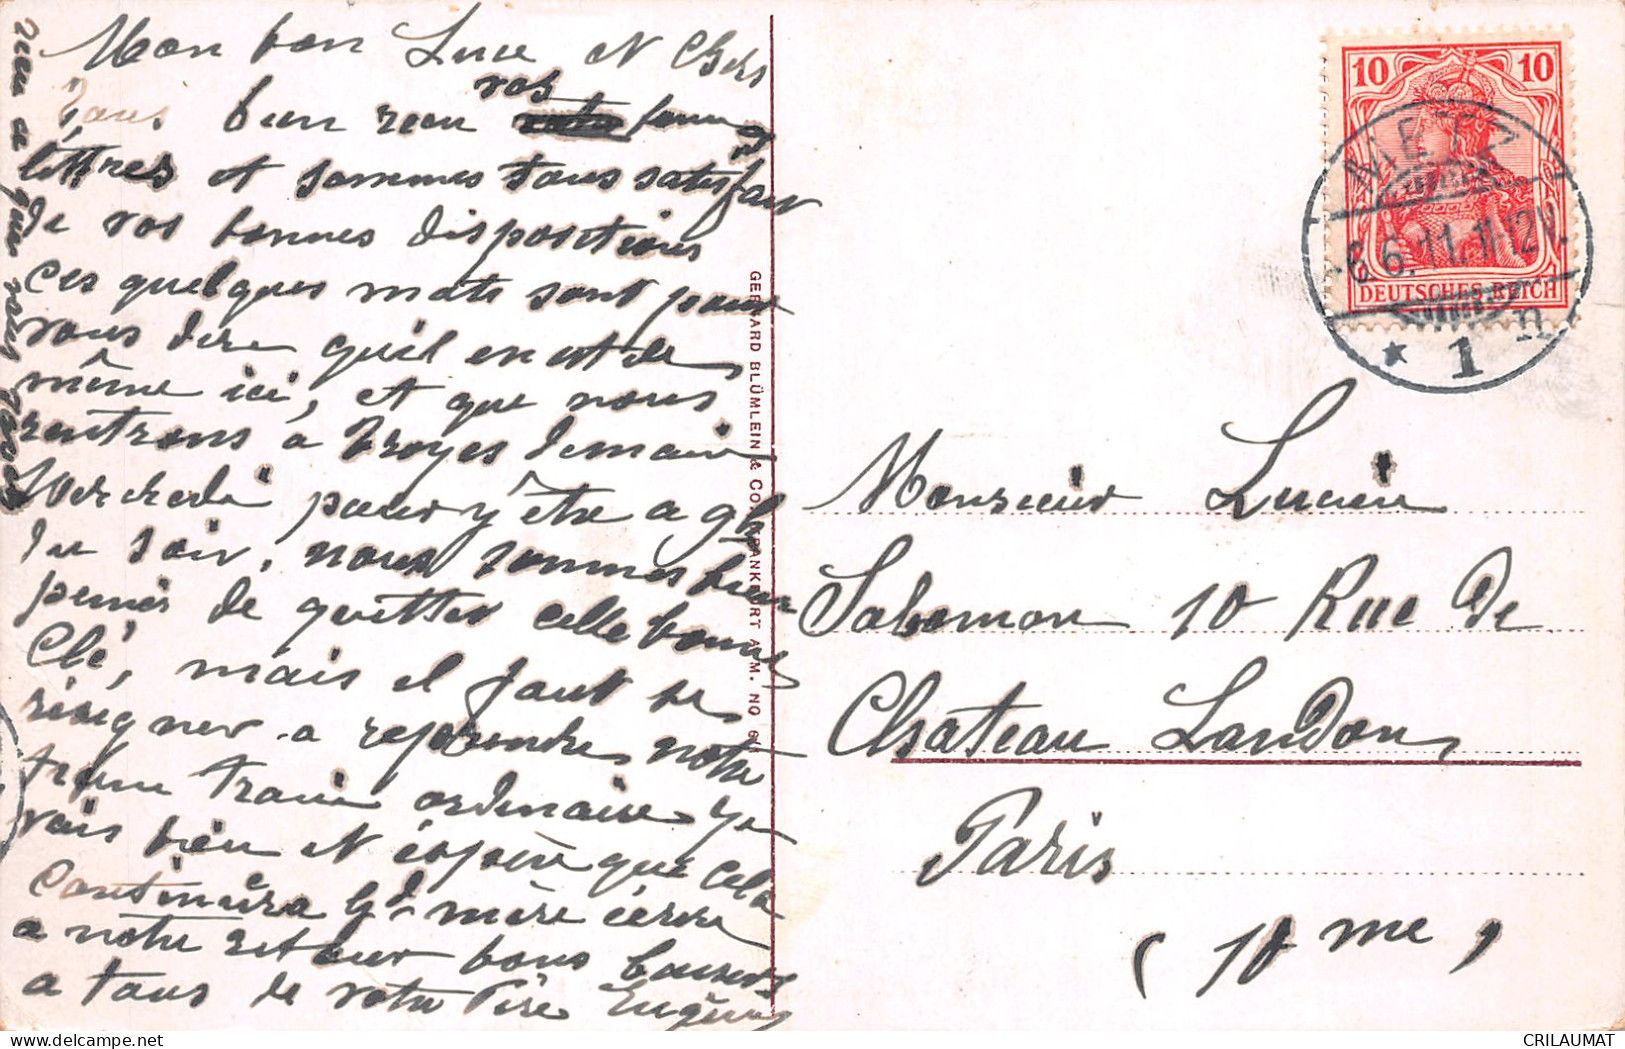 Mon bon Luce et Chers
Tous bien reçu vos bonnes
lettres et sommes tous satisfait
de vos bonnes dispositions
ces quelques mots sont pour
vous dire qu'il en est de
même ici, et que nous
rentrons a Troyes demain
Mercredi pour y être a 9h
du soir, nous sommes bien
peinés de quitter cette bonne
Clé, mais il faut se
résigner a reprendre notre
train train ordinaire. Je
vais bien et espère que cela
continuera Gd mère écrira
a notre retour bons baisers
a tous de votre Père Eugène
GERHARD BLÜMLEIN & CO. FRANKFURT A. M. NO
10 10
DEUTSCHES REICH
METZ
6.6.11.11-12V.
* 1 n
Monsieur Lucien
Salomon 10 Rue de
Chateau Landon,
Paris
(10me)
CRILAUMAT